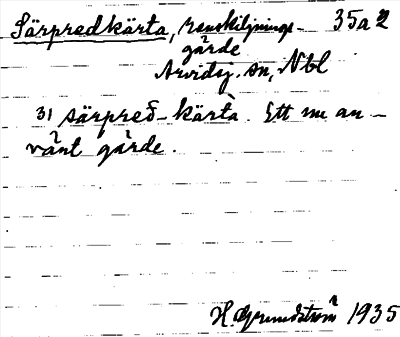 Särpredkärta, renskiljnings- 35a2
gärde
Arvidsj. sn, Nbl
31 särpred-kärta. Ett nu an-
vänt gärde.
H. Grundström 1935